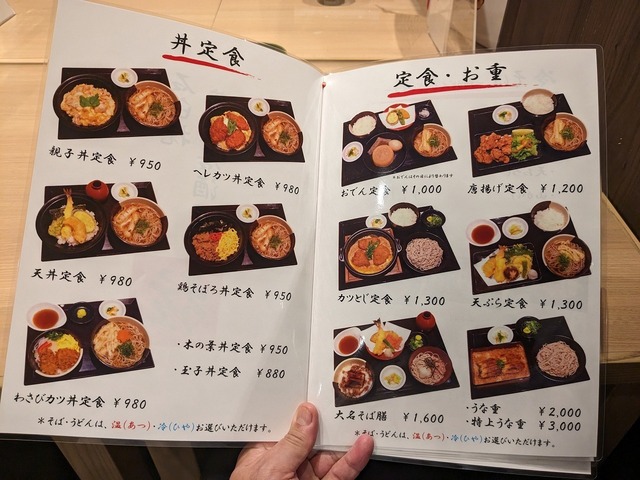 丼定食
親子丼定食 ¥950
ヘレカツ丼定食 ¥980
天丼定食 ¥980
鶏そぼろ丼定食 ¥950
わさびカツ丼定食 ¥980
・木の葉丼定食 ¥950
・玉子丼定食 ¥880
＊そば・うどんは、温(あつ)・冷(ひや)お選びいただけます。
定食・お重
おでん定食 ¥1,000
唐揚げ定食 ¥1,200
カツとじ定食 ¥1,300
天ぷら定食 ¥1,300
大名そば膳 ¥1,600
・うな重 ¥2,000
・特上うな重 ¥3,000
＊そば・うどんは、温(あつ)・冷(ひや)お選びいただけます。